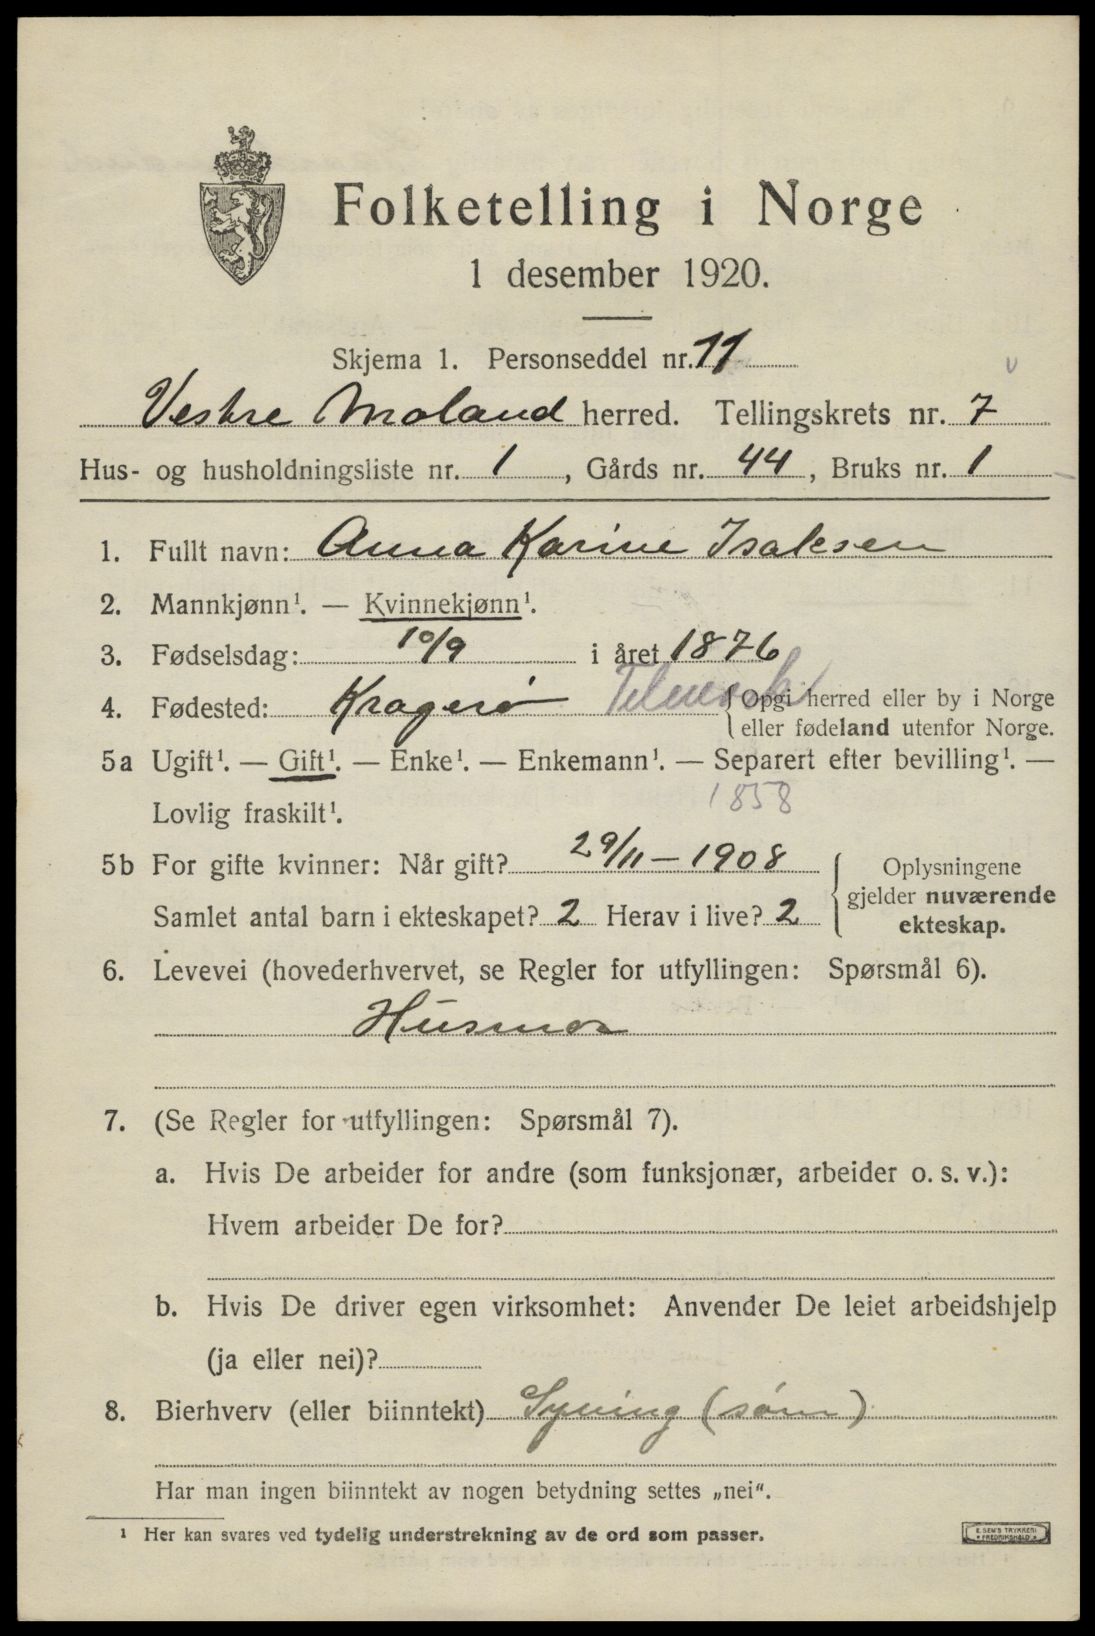 Folketelling i Norge
1 desember 1920.
Skjema 1. Personseddel nr. 11
Vestre Moland herred. Tellingskrets nr. 7
Hus- og husholdningsliste nr. 1, Gårds nr. 44, Bruks nr. 1
1. Fullt navn: Anna Karine Isaksen
2. Mannkjønn¹. — Kvinnekjønn¹.
3. Fødselsdag: 10/9 i året 1876
4. Fødested: Kragerø Telemark { Opgi herred eller by i Norge
eller fødeland utenfor Norge.
5a Ugift¹. — Gift¹. — Enke¹. — Enkemann¹. — Separert efter bevilling¹. —
Lovlig fraskilt¹. 1858
5b For gifte kvinner: Når gift? 29/11 – 1908
Samlet antal barn i ekteskapet? 2 Herav i live? 2
{ Oplysningene
gjelder nuværende
ekteskap.
6. Levevei (hovederhvervet, se Regler for utfyllingen: Spørsmål 6).
Husmor
7. (Se Regler for utfyllingen: Spørsmål 7).
a. Hvis De arbeider for andre (som funksjonær, arbeider o. s. v.):
Hvem arbeider De for?
b. Hvis De driver egen virksomhet: Anvender De leiet arbeidshjelp
(ja eller nei)?
8. Bierhverv (eller biinntekt) Syning (søm)
Har man ingen biinntekt av nogen betydning settes „nei".
¹ Her kan svares ved tydelig understrekning av de ord som passer.
E. SEM'S TRYKKERI
FREDRIKSHALD